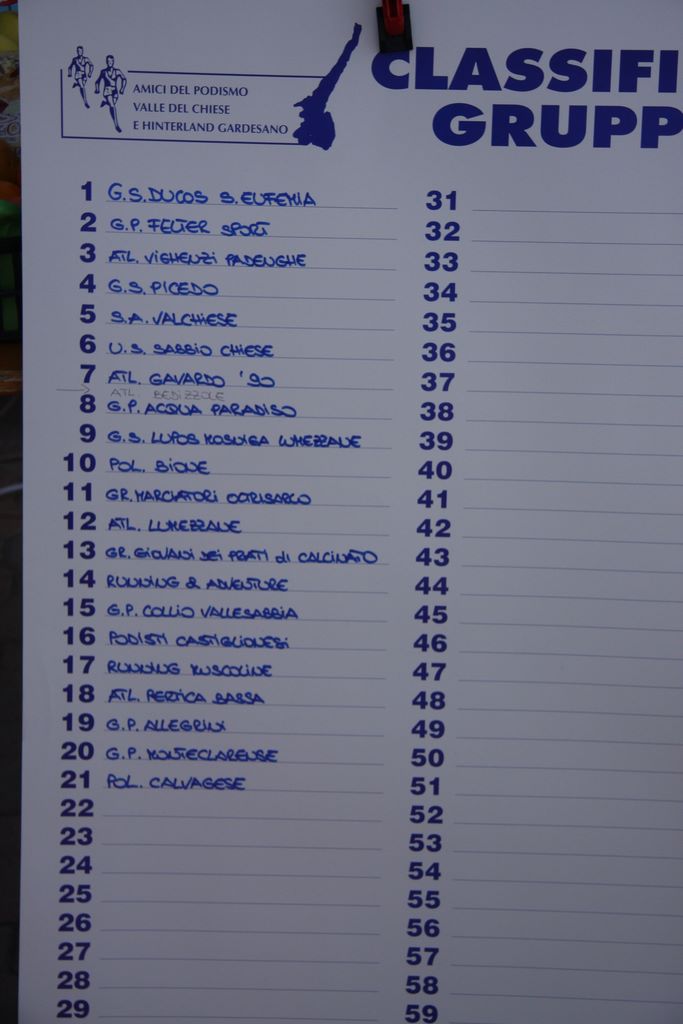 AMICI DEL PODISMO
VALLE DEL CHIESE
E HINTERLAND GARDESANO
CLASSIFI
GRUPP
1 G.S. DUCOS S. EUFEMIA
2 G.P. FELTER SPORT
3 ATL. VIGHENZI PADENGHE
4 G.S. PICEDO
5 S.A. VALCHIESE
6 U.S. SABBIO CHIESE
7 ATL. GAVARDO '90
ATL. BEDIZZOLE
8 G.P. ACQUA PARADISO
9 G.S. LUPOS LUMEZZANE
10 POL. BIONE
11 GR. MARCIATORI
12 ATL. LUMEZZANE
13 GR. GIOVANI DEI PRATI di CALCINATO
14 RUNNING & ADVENTURE
15 G.P. COLLIO VALLESABBIA
16 PODISTI CASTIGLIONESI
17 RUNNING MUSCOLINE
18 ATL. PERTICA BASSA
19 G.P. ALLEGRINI
20 G.P. MONTECLARENSE
21 POL. CALVAGESE
22
23
24
25
26
27
28
29
31
32
33
34
35
36
37
38
39
40
41
42
43
44
45
46
47
48
49
50
51
52
53
54
55
56
57
58
59